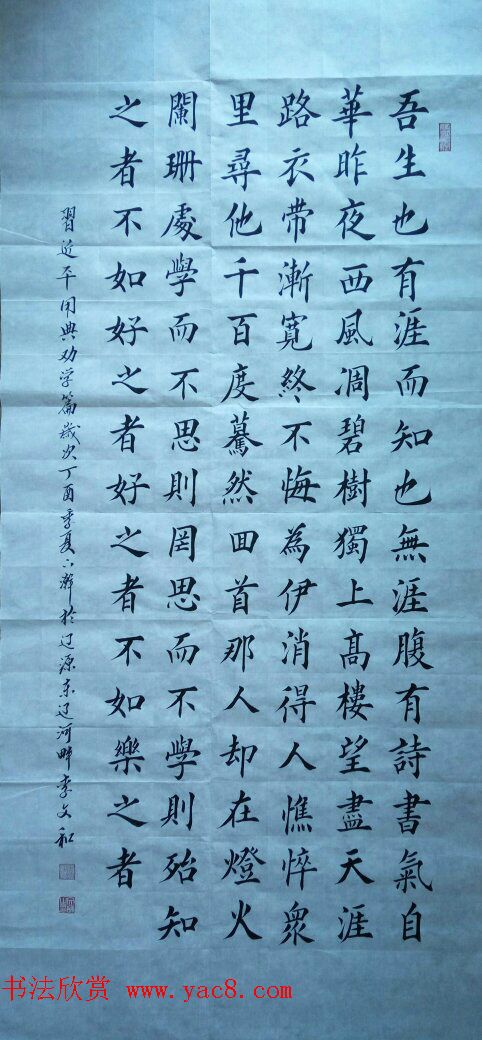 吾生也有涯而知也無涯腹有詩書氣自
華昨夜西風凋碧樹獨上高樓望盡天涯
路衣带漸寬終不悔為伊消得人憔悴衆
里尋他千百度驀然回首那人却在燈火
闌珊處學而不思則罔思而不學則殆知
之者不如好之者好之者不如樂之者
習近平用典劝学篇歲次丁酉季夏下澣於辽源东辽河畔李文和
书法欣赏 www.yac8.com